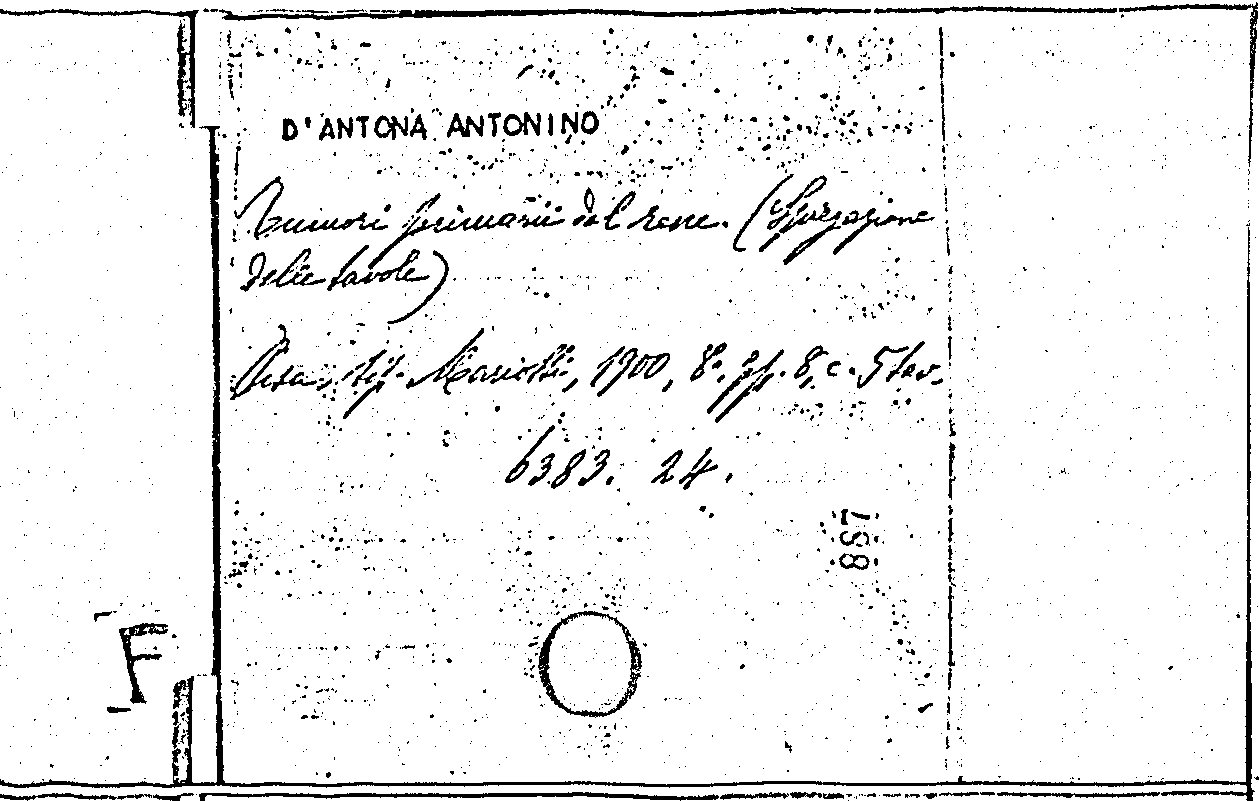 D'ANTONA ANTONINO
Tumori primarii del rene. (Spiegazione
delle tavole)
Pisa, tip. Mariotti, 1900, 8°. pp. 8, c. 5 tav.
6383. 24.
857
F